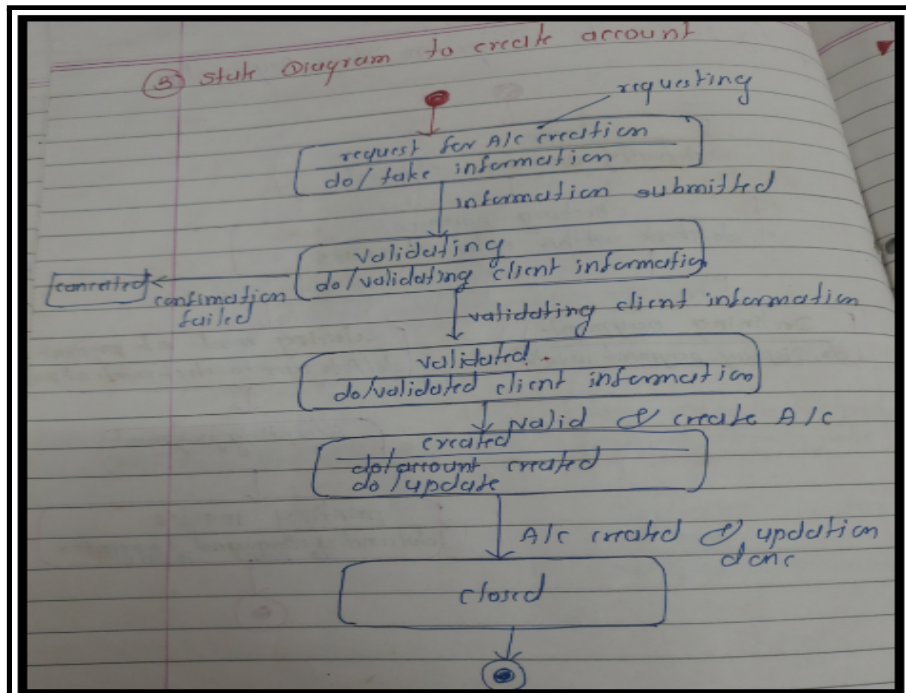 ③ State Diagram to create account
requesting
request for A/c creation
do/ take information
information submitted
validating
do/validating client information
cancelled
confimation
failed
validating client information
validated
do/validated client information
valid & create A/c
created
do/account created
do/update
A/c created & updation
done
closed